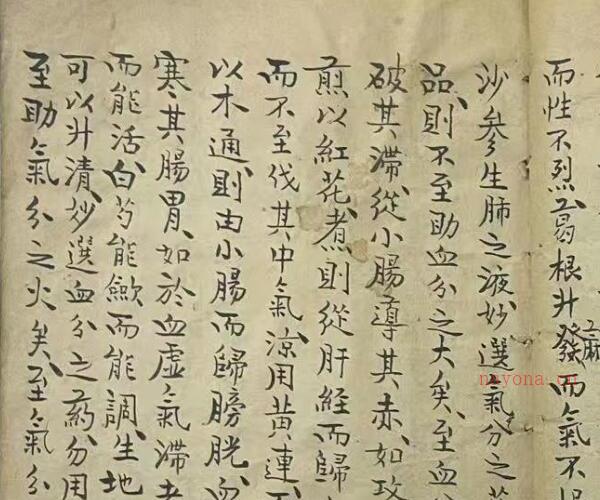 而性不烈葛根升發而氣不
沙參生肺之液妙選氣分之
品則不至助血分之大矣至血
破其滯從小腸導其赤如攻
煎以紅花煮則從肝経而歸
而不至伐其中氣涼用黃連
以木通則由小腸而歸膀胱
寒其腸胃如於血虛氣滯
而能活白芍能歛而能調生地
可以升清妙選血分之药分用
至助氣分之火矣至氣分